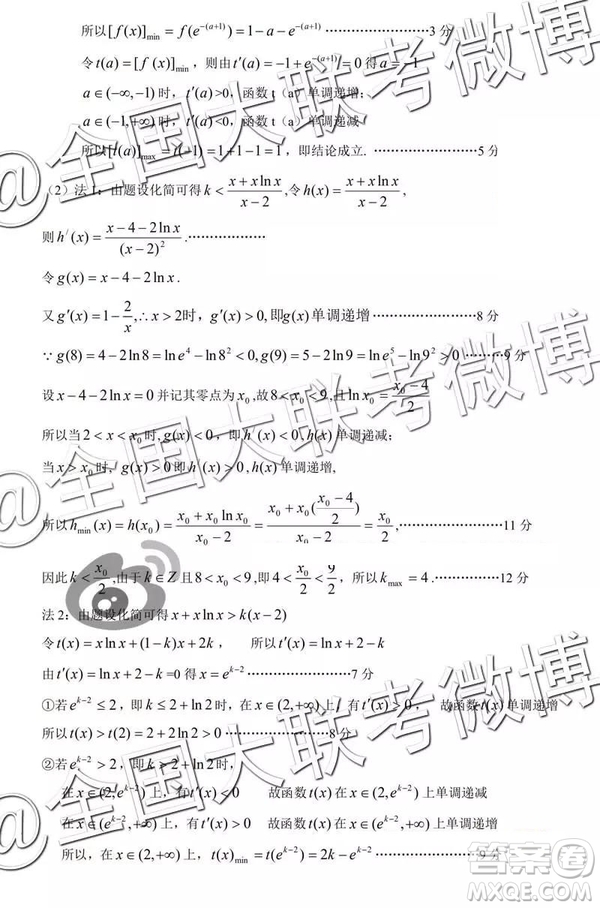 所以[f(x)]min = f(e^{-(a+1)}) = 1-a-e^{-(a+1)} ························3 分
令t(a)=[f(x)]min，则由t′(a)=-1+e^{-(a+1)}=0得a=-1
a∈(-∞,-1)时，t′(a)>0,函数 t（a）单调递增；
a∈(-1,+∞)时，t′(a)<0,函数 t（a）单调递减
所以[t(a)]max=t(-1)=1+1-1=1，即结论成立. ························5 分
（2）法 1：由题设化简可得 k<(x+x ln x)/(x-2),令h(x)=(x+x ln x)/(x-2),
则h′(x)=(x-4-2ln x)/(x-2)².··················
令g(x)=x-4-2ln x.
又g′(x)=1-2/x,∴x>2时, g′(x)>0,即g(x)单调递增························8 分
∵g(8)=4-2ln8=ln e⁴-ln8²<0,g(9)=5-2ln9=ln e⁵-ln9²>0 ·········9 分
设x-4-2ln x=0并记其零点为x₀,故8<x₀<9,且ln x₀=(x₀-4)/2
所以当2<x<x₀时, g(x)<0，即h′(x)<0,h(x)单调递减；
当x>x₀时，g(x)>0即h′(x)>0,h(x)单调递增,
所以hmin(x)=h(x₀)=(x₀+x₀ ln x₀)/(x₀-2)=(x₀+x₀((x₀-4)/2))/(x₀-2)=x₀/2,························11 分
因此k<x₀/2,由于k∈Z且8<x₀<9,即4<x₀/2<9/2，所以kmax=4.···············12 分
法 2：由题设化简可得x+x ln x>k(x-2)
令t(x)=x ln x+(1-k)x+2k， 所以t′(x)=ln x+2-k
由t′(x)=ln x+2-k=0 得x=e^{k-2} ························7 分
①若e^{k-2}≤2，即k≤2+ln2时，在x∈(2,+∞)上，有t′(x)>0， 故函数t(x)单调递增
所以t(x)>t(2)=2+2ln2>0 ························8 分
②若e^{k-2}>2，即k>2+ln2时，
在x∈(2,e^{k-2})上，有t′(x)<0 故函数t(x)在x∈(2,e^{k-2})上单调递减
在x∈(e^{k-2},+∞)上，有t′(x)>0 故函数t(x)在x∈(e^{k-2},+∞)上单调递增
所以，在x∈(2,+∞)上，t(x)min=t(e^{k-2})=2k-e^{k-2} ························9 分
@全国大联考微博
@全国大联考微博
@全国大联考微博
答案圈
MXQE.COM